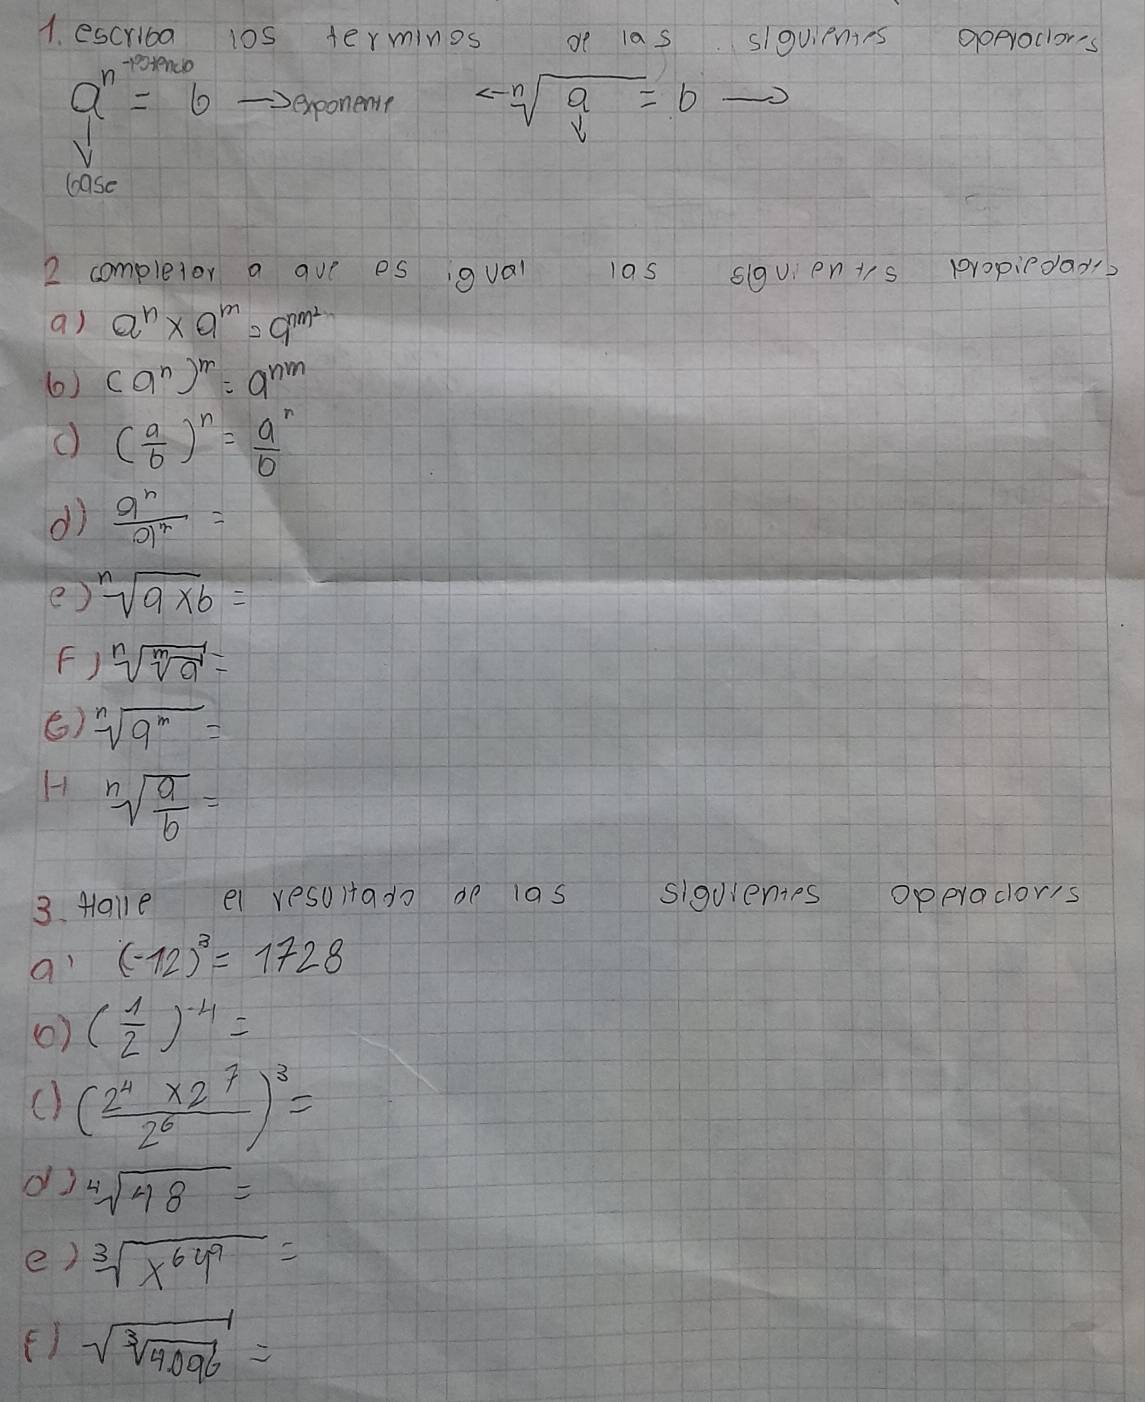 1. escriba los terminos de las siguientes operaciones
aⁿ →potencia = b →exponente ←ⁿ√a = b →
↓ ↓
base
2 completar a que es igual las siguientes propiedades
a) aⁿ x aᵐ = aⁿᵐ²
b) (aⁿ)ᵐ = aⁿᵐ
c) (a/b)ⁿ = a/b ⁿ
d) aⁿ/aⁿ =
e) ⁿ√a x b =
F) ⁿ√ᵐ√a =
G) ⁿ√aᵐ =
H ⁿ√a/b =
3. Halle el resultado de las siguientes operaciones
a) (-12)³ = 1728
b) (1/2)⁻⁴ =
c) (2⁴ x 2⁷ / 2⁶)³ =
d) ⁴√48 =
e) ³√x⁶y⁹ =
F) √³√4.096 =